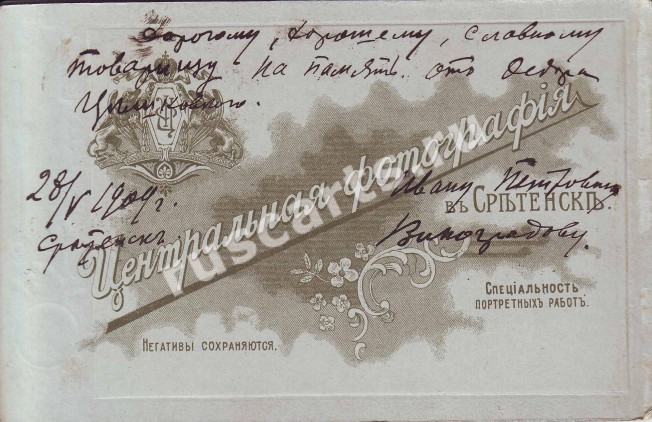 Дорогому, хорошему, славному
товарищу на память отъ Федора
28/V 1909 г.
Срѣтенскъ.
Ивану Петровичу
Виноградову.
Центральная фотографія
въ Срѣтенскѣ.
Спеціальность
портретныхъ работъ.
Негативы сохраняются.